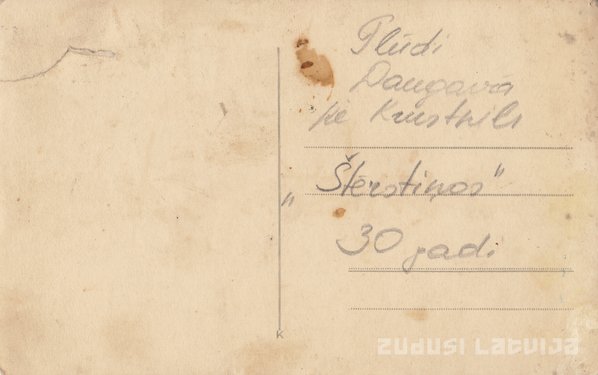 Plūdi
Daugavā
pie Krustpils
„Šterstiņos"
30 gadi
K
ZUDUSI LATVIJA